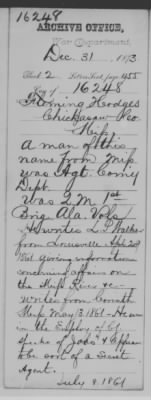 16248
ARCHIVE OFFICE,
War Department,
Dec. 31 1873
Chapt 2 Letters Sent page 455
16248
Fleming Hodges
Chickasaw Co
Miss
A man of this
name from Miss.
was Agt. Comy
Dept.
Was Q.M. 1st
Brig Ala. Vols
He writes L.P. Walker
from Louisville Apl 23d
1861 giving information
concerning affairs on
the Miss River &c
writes from Corinth
Miss May 13 1861 - He was
in the Employ of
of Jobs & Appears
to be sort of a Secret
Agent.
July 8 1861